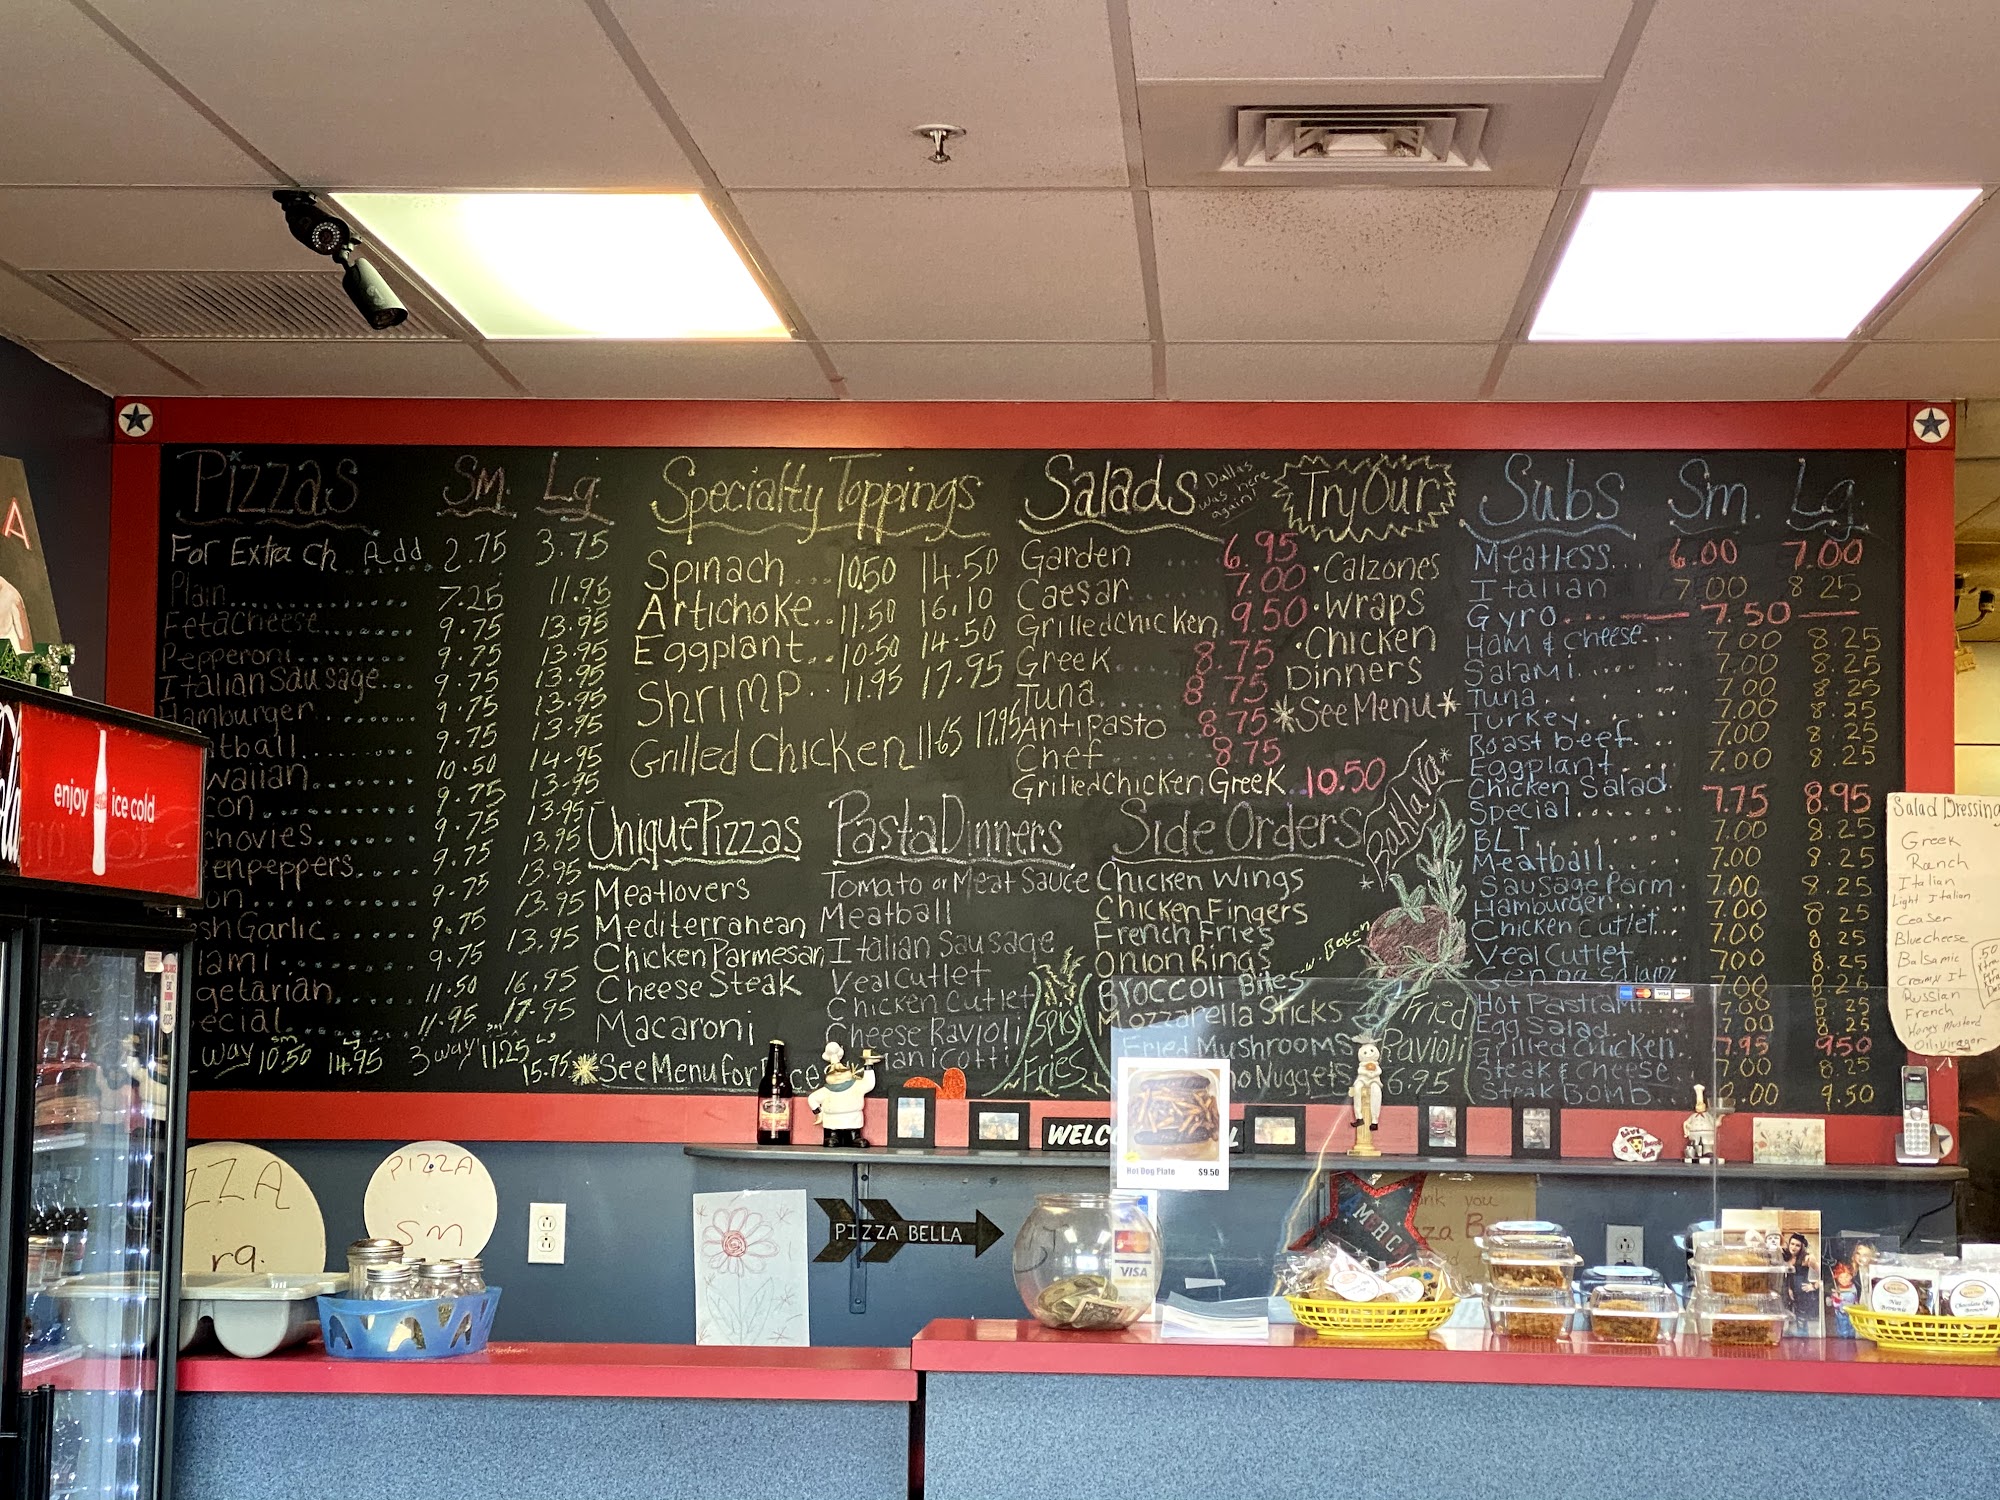 Pizzas Sm. Lg.
For Extra Ch. Add 2.75 3.75
Plain 7.25 11.95
Feta cheese 9.75 13.95
Pepperoni 9.75 13.95
Italian Sausage 9.75 13.95
Hamburger 9.75 13.95
tball 9.75 13.95
waiian 10.50 14.95
con 9.75 13.95
chovies 9.75 13.95
enpeppers 9.75 13.95
on 9.75 13.95
sh Garlic 9.75 13.95
lami 9.75 13.95
getarian 11.50 16.95
ecial 11.95 17.95
way sm 10.50 14.95 3 way sm 11.25 Lg 15.95
Specialty Toppings
Spinach 10.50 14.50
Artichoke 11.50 16.10
Eggplant 10.50 14.50
Shrimp 11.95 17.95
Grilled Chicken 11.65 17.95
Unique Pizzas
Meatlovers
Mediterranean
Chicken Parmesan
Cheese Steak
Macaroni
See Menu for
Pasta Dinners
Tomato or Meat Sauce
Meatball
Italian Sausage
Veal Cutlet
Chicken Cutlet
Cheese Ravioli
anicotti
Spicy
Fries
Salads
Dallas
was here
again!
Garden 6.95
Caesar 7.00
Grilled chicken 9.50
Greek 8.75
Tuna 8.75
Antipasto 8.75
Chef 8.75
Grilled Chicken Greek 10.50
Try Our
·Calzones
·Wraps
·Chicken
Dinners
*See Menu*
Side Orders
*Baklava*
Chicken Wings
Chicken Fingers
French Fries
Onion Rings
Broccoli Bites w. Bacon
Mozzarella Sticks
Fried Mushrooms
o Nuggets
Fried
Ravioli
6.95
Subs Sm. Lg.
Meatless... 6.00 7.00
Italian 7.00 8.25
Gyro 7.50
Ham & Cheese 7.00 8.25
Salami 7.00 8.25
Tuna 7.00 8.25
Turkey 7.00 8.25
Roast beef 7.00 8.25
Eggplant 7.00 8.25
Chicken Salad 7.75 8.95
Special 7.00 8.25
BLT 7.00 8.25
Meatball 7.00 8.25
Sausage Parm 7.00 8.25
Hamburger 7.00 8.25
Chicken Cutlet 7.00 8.25
Veal Cutlet 7.00 8.25
Genoa Salami
Hot Pastrami 7.00 8.25
Egg Salad 7.00 8.25
Grilled Chicken 7.95 9.50
Steak & Cheese 7.00 8.25
Steak Bomb 9.50
Salad Dressing
Greek
Ranch
Italian
Light Italian
Ceaser
Bluecheese
Balsamic
Creamy It
Russian
French
Honey Mustard
Oil & Vinager
.50
A
enjoy ice cold
ZZA
rg.
PIZZA
Sm
PIZZA BELLA
WELC
Hot Dog Plate $9.50
VISA
MERCI
nk you
zza B
Nut
Brownie
Chocolate Chip
Brownie